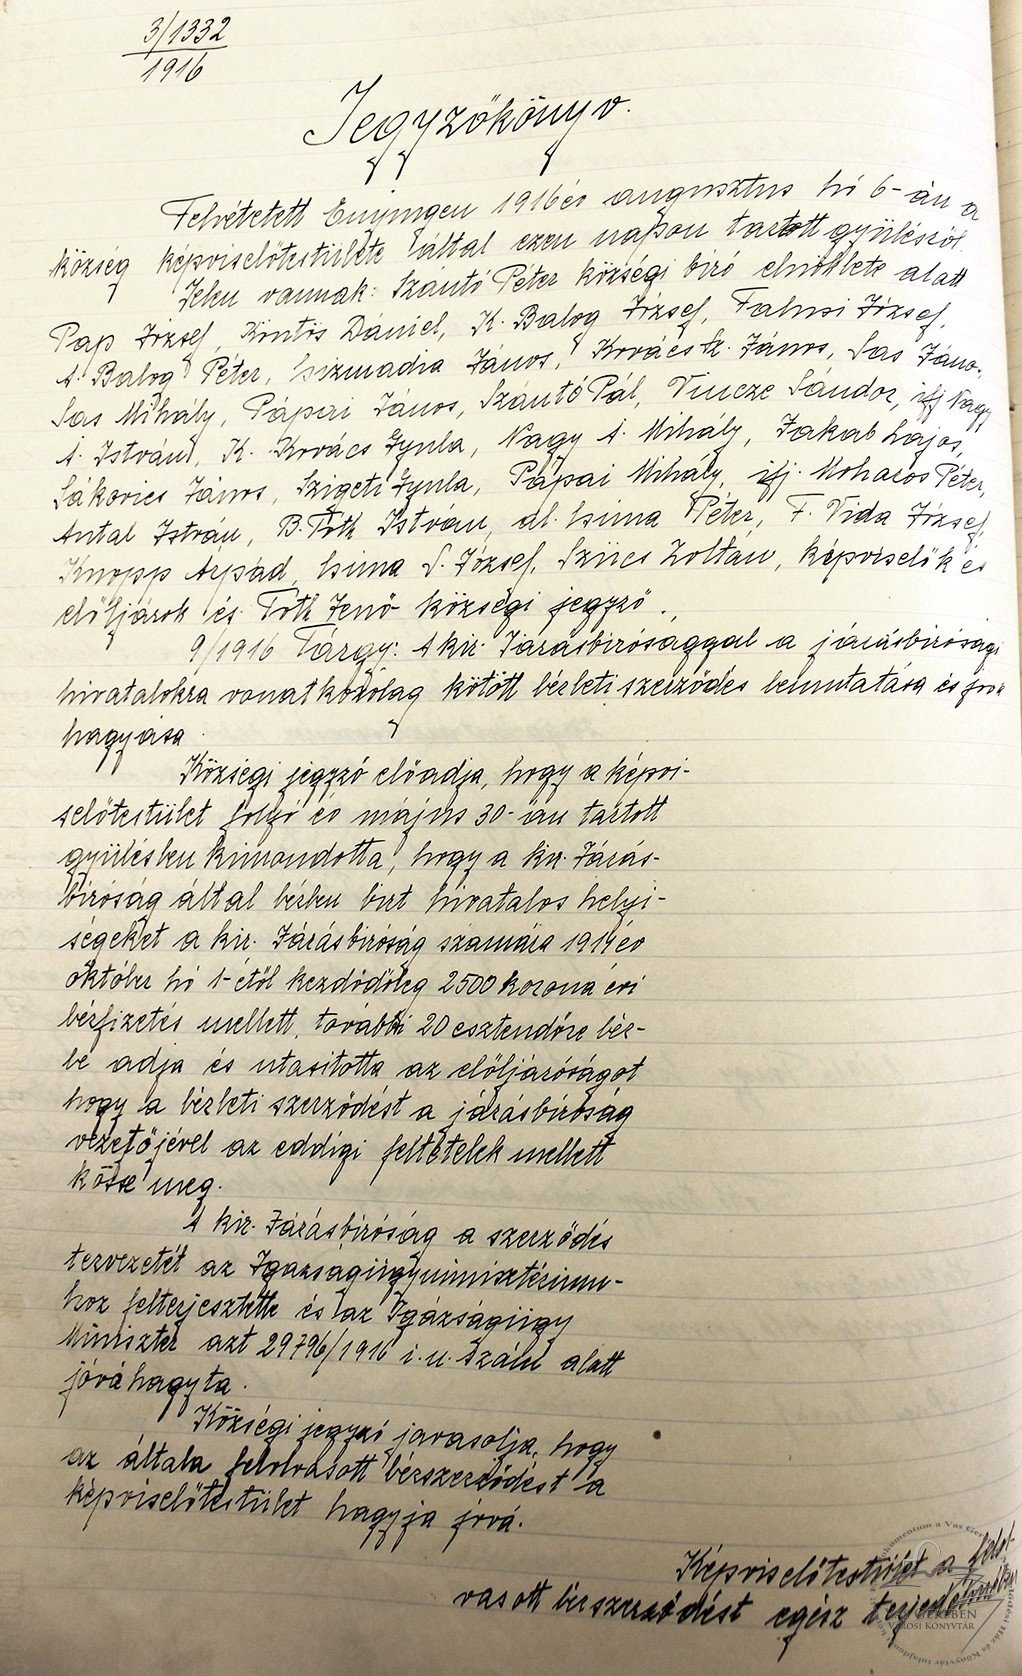 3/1332
1916
Jegyzőkönyv.
Felvétetett Enyingen 1916 év augusztus hó 6-án a
község képviselőtestülete által ezen napon tartott gyülésről.
Jelen vannak: Szántó Péter községi biró elnöklete alatt
Pap József, Kintis Dániel, K. Balog József, Falusi József,
A. Balog Péter, Csizmadia János, Kovács K. János, Sas János,
Sas Mihály, Pápai János, Szántó Pál, Vincze Sándor, ifj Nagy
A. István, K. Kovács Gyula, Nagy A. Mihály, Jakab Lajos,
Sákovics János, Szigeti Gyula, Pápai Mihály, ifj. Moharos Péter,
Antal István, B. Tóth István, al. Csima Péter, F. Vida József,
Knopp Árpád, Csima S. József, Szücs Zoltán, képviselők és
elöljárok és Tóth Jenő községi jegyző.
9/1916 Tárgy: A kir. Járásbirósággal a járásbirósági
hivatalokra vonatkozólag kötött bérleti szerződés bemutatása és jóvá
hagyása.
Községi jegyző előadja, hogy a képvi-
selőtestület folyó év május 30-án tartott
gyülésben kimondotta, hogy a kir. Járás-
biróság által bérben birt hivatalos helyi-
ségeket a kir. Járásbiróság számára 1914 év
október hó 1-étől kezdődőleg 2500 korona évi
bérfizetés mellett, további 20 esztendőre bér-
be adja és utasitotta az elöljáróságot
hogy a bérleti szerződést a járásbiróság
vezetőjével az eddigi feltételek mellett
kösse meg.
A kir. Járásbiróság a szerződés
tervezetét az Igazságügyminisztérium-
hoz felterjesztette és az Igazságügy
Miniszter azt 29796/1916 i. u. szám alatt
jóváhagyta.
Községi jegyző javasolja, hogy
az általa felolvasott bérszerződést a
képviselőtestület hagyja jóvá.
Képviselőtestület a felol-
vasott bérszerződést egész terjedelmében
VÁROSI KÖNYVTÁR